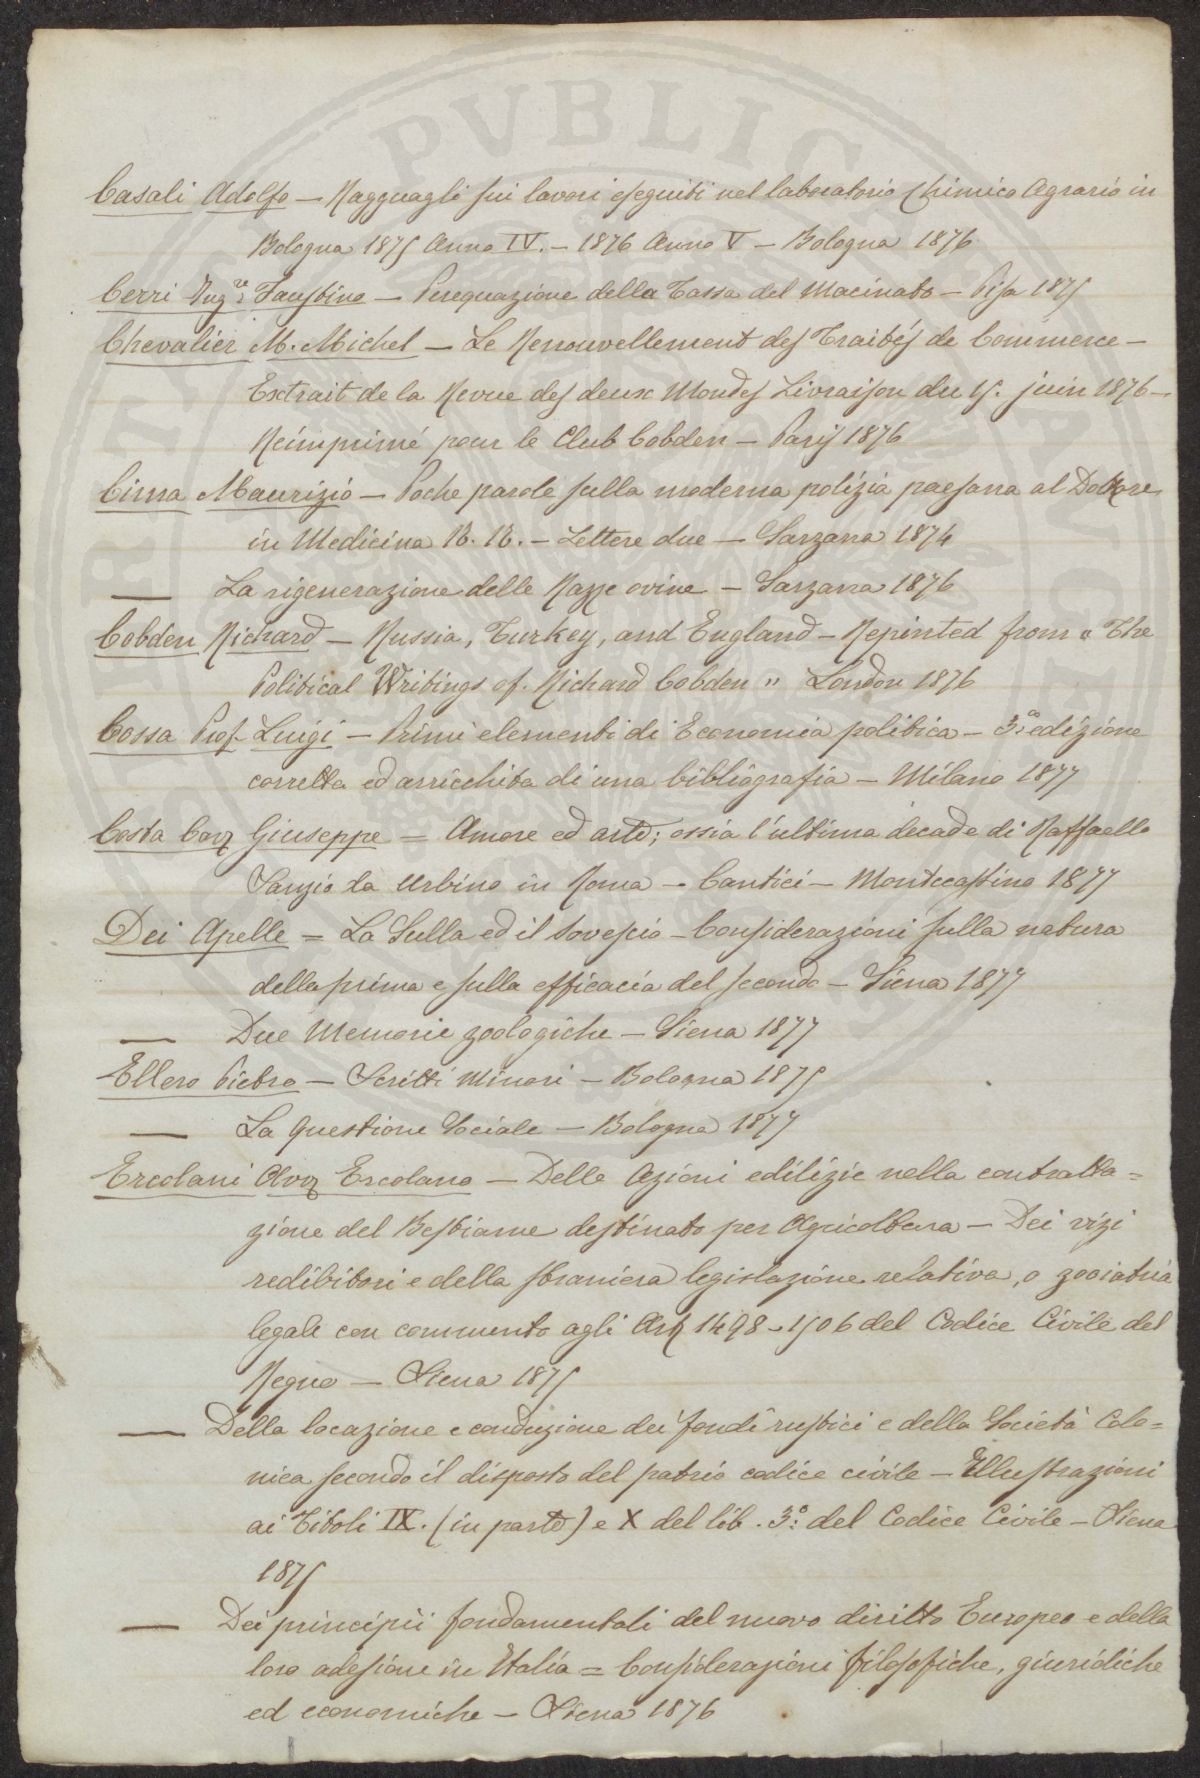 Casali Adolfo — Ragguagli sui lavori eseguiti nel laboratorio Chimico Agrario in
Bologna 1875 Anno IV. — 1876 Anno V — Bologna 1876
Cerri Ing.re Faustino — Perequazione della Tassa del Macinato — Pisa 1875
Chevalier M. Michel — Le Renouvellement des Traités de Commerce —
Extrait de la Revue des deux Mondes Livraison du 15. juin 1876 —
Réimprimé pour le Club Cobden — Paris 1876
Cima Maurizio — Poche parole sulla moderna polizia paesana al Dottore
in Medicina B. B. — Lettere due — Sarzana 1874
— La rigenerazione delle Razze ovine — Sarzana 1876
Cobden Richard — Russia, Turkey, and England — Reprinted from " The
Political Writings of. Richard Cobden " London 1876
Cossa Prof. Luigi — Primi elementi di Economia politica — 3.a edizione
corretta ed arricchita di una bibliografia — Milano 1877
Costa Cav. Giuseppe = Amore ed arte; ossia l'ultima decade di Raffaello
Sanzio da Urbino in Roma — Cantici — Montecassino 1877
Dei Apelle = La Sulla ed il Sovescio — Considerazioni sulla natura
della prima e sulla efficacia del secondo — Siena 1877
— Due Memorie zoologiche — Siena 1877
Ellero Pietro — Scritti Minori — Bologna 1875
— La Questione Sociale — Bologna 1877
Ercolani Avv. Ercolano — Delle Azioni edilizie nella contratta=
zione del Bestiame destinato per Agricoltura — Dei vizi
redibitori e della straniera legislazione relativa, o zooiatria
legale con commento agli Art. 1498-1506 del Codice Civile del
Regno — Siena 1875
— Della locazione e conduzione dei fondi rustici e della Società Colo=
nica secondo il disposto del patrio codice civile — Illustrazioni
ai Titoli IX. (in parte) e X del lib. 3.o del Codice Civile — Siena
1875
— Dei principii fondamentali del nuovo diritto Europeo e della
loro adesione in Italia = Considerazioni filosofiche, giuridiche
ed economiche — Siena 1876